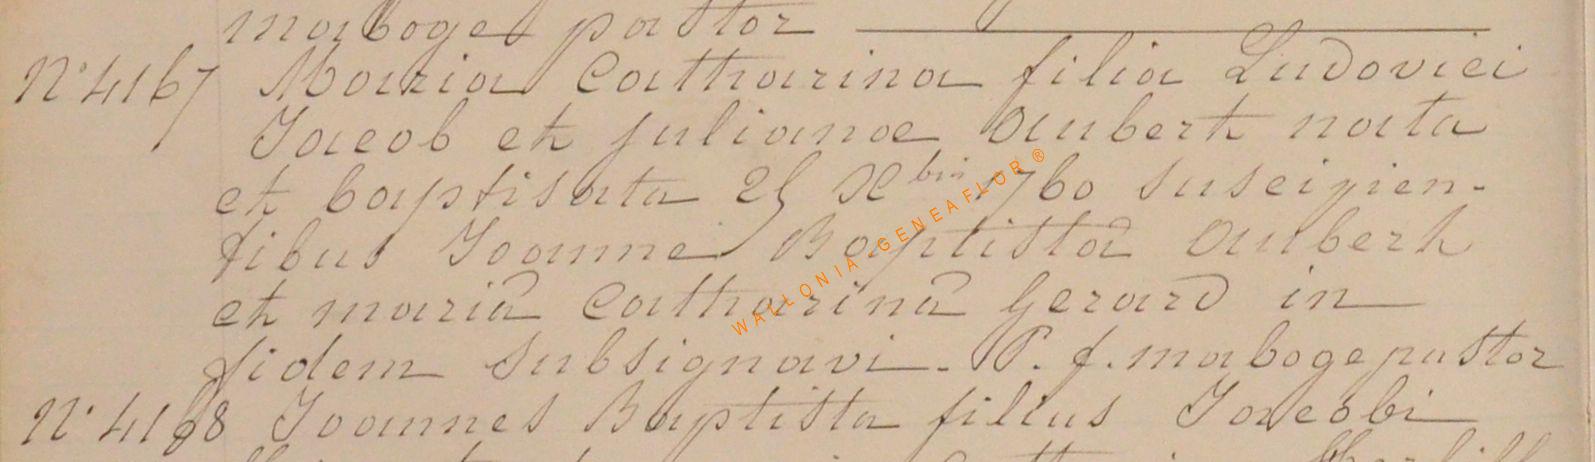 maboge pastor
N° 4167 Maria Catharina filia Ludovici
Jacob et julianae Aubert nata
et baptisata 25 Xbris 1760 suscipien-
tibus Joanne Baptistâ Aubert
et mariâ Catharinâ Gerard in
fidem subsignavi. P. f. maboge pastor
N° 4168 Joannes Baptista filius Jacobi
WALLONIA GENEAFLOR®